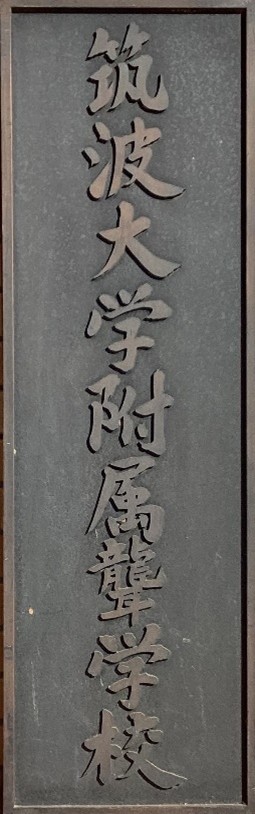 筑波大学附属聾学校